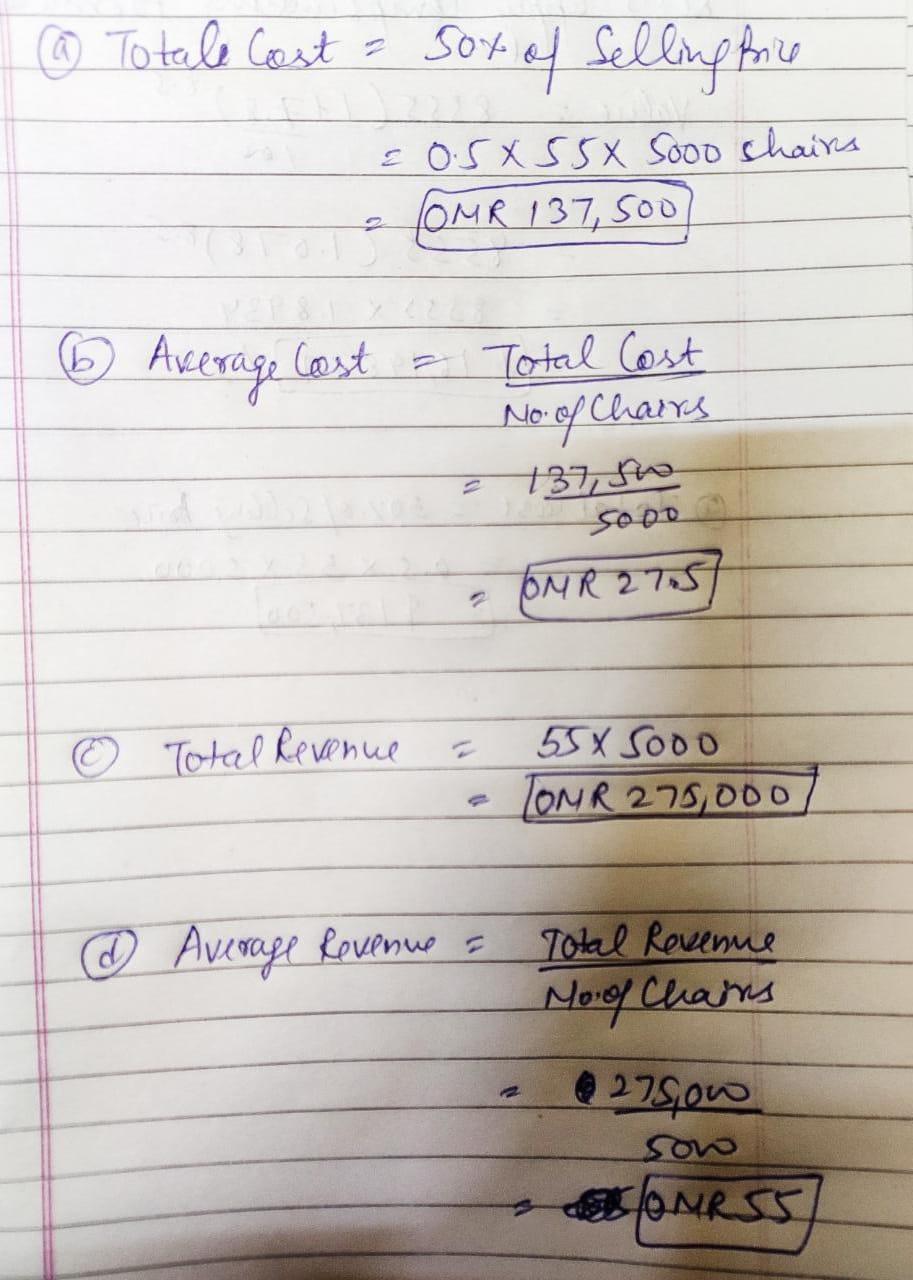 ⓐ Total Cost = 50% of Selling Price
= 0.5 X 55 X 5000 chairs
= OMR 137,500
ⓑ Average Cost = Total Cost
No. of Chairs
= 137,500
5000
= OMR 27.5
ⓒ Total Revenue = 55 X 5000
= OMR 275,000
ⓓ Average Revenue = Total Revenue
No. of Chairs
= 275,000
5000
= OMR 55